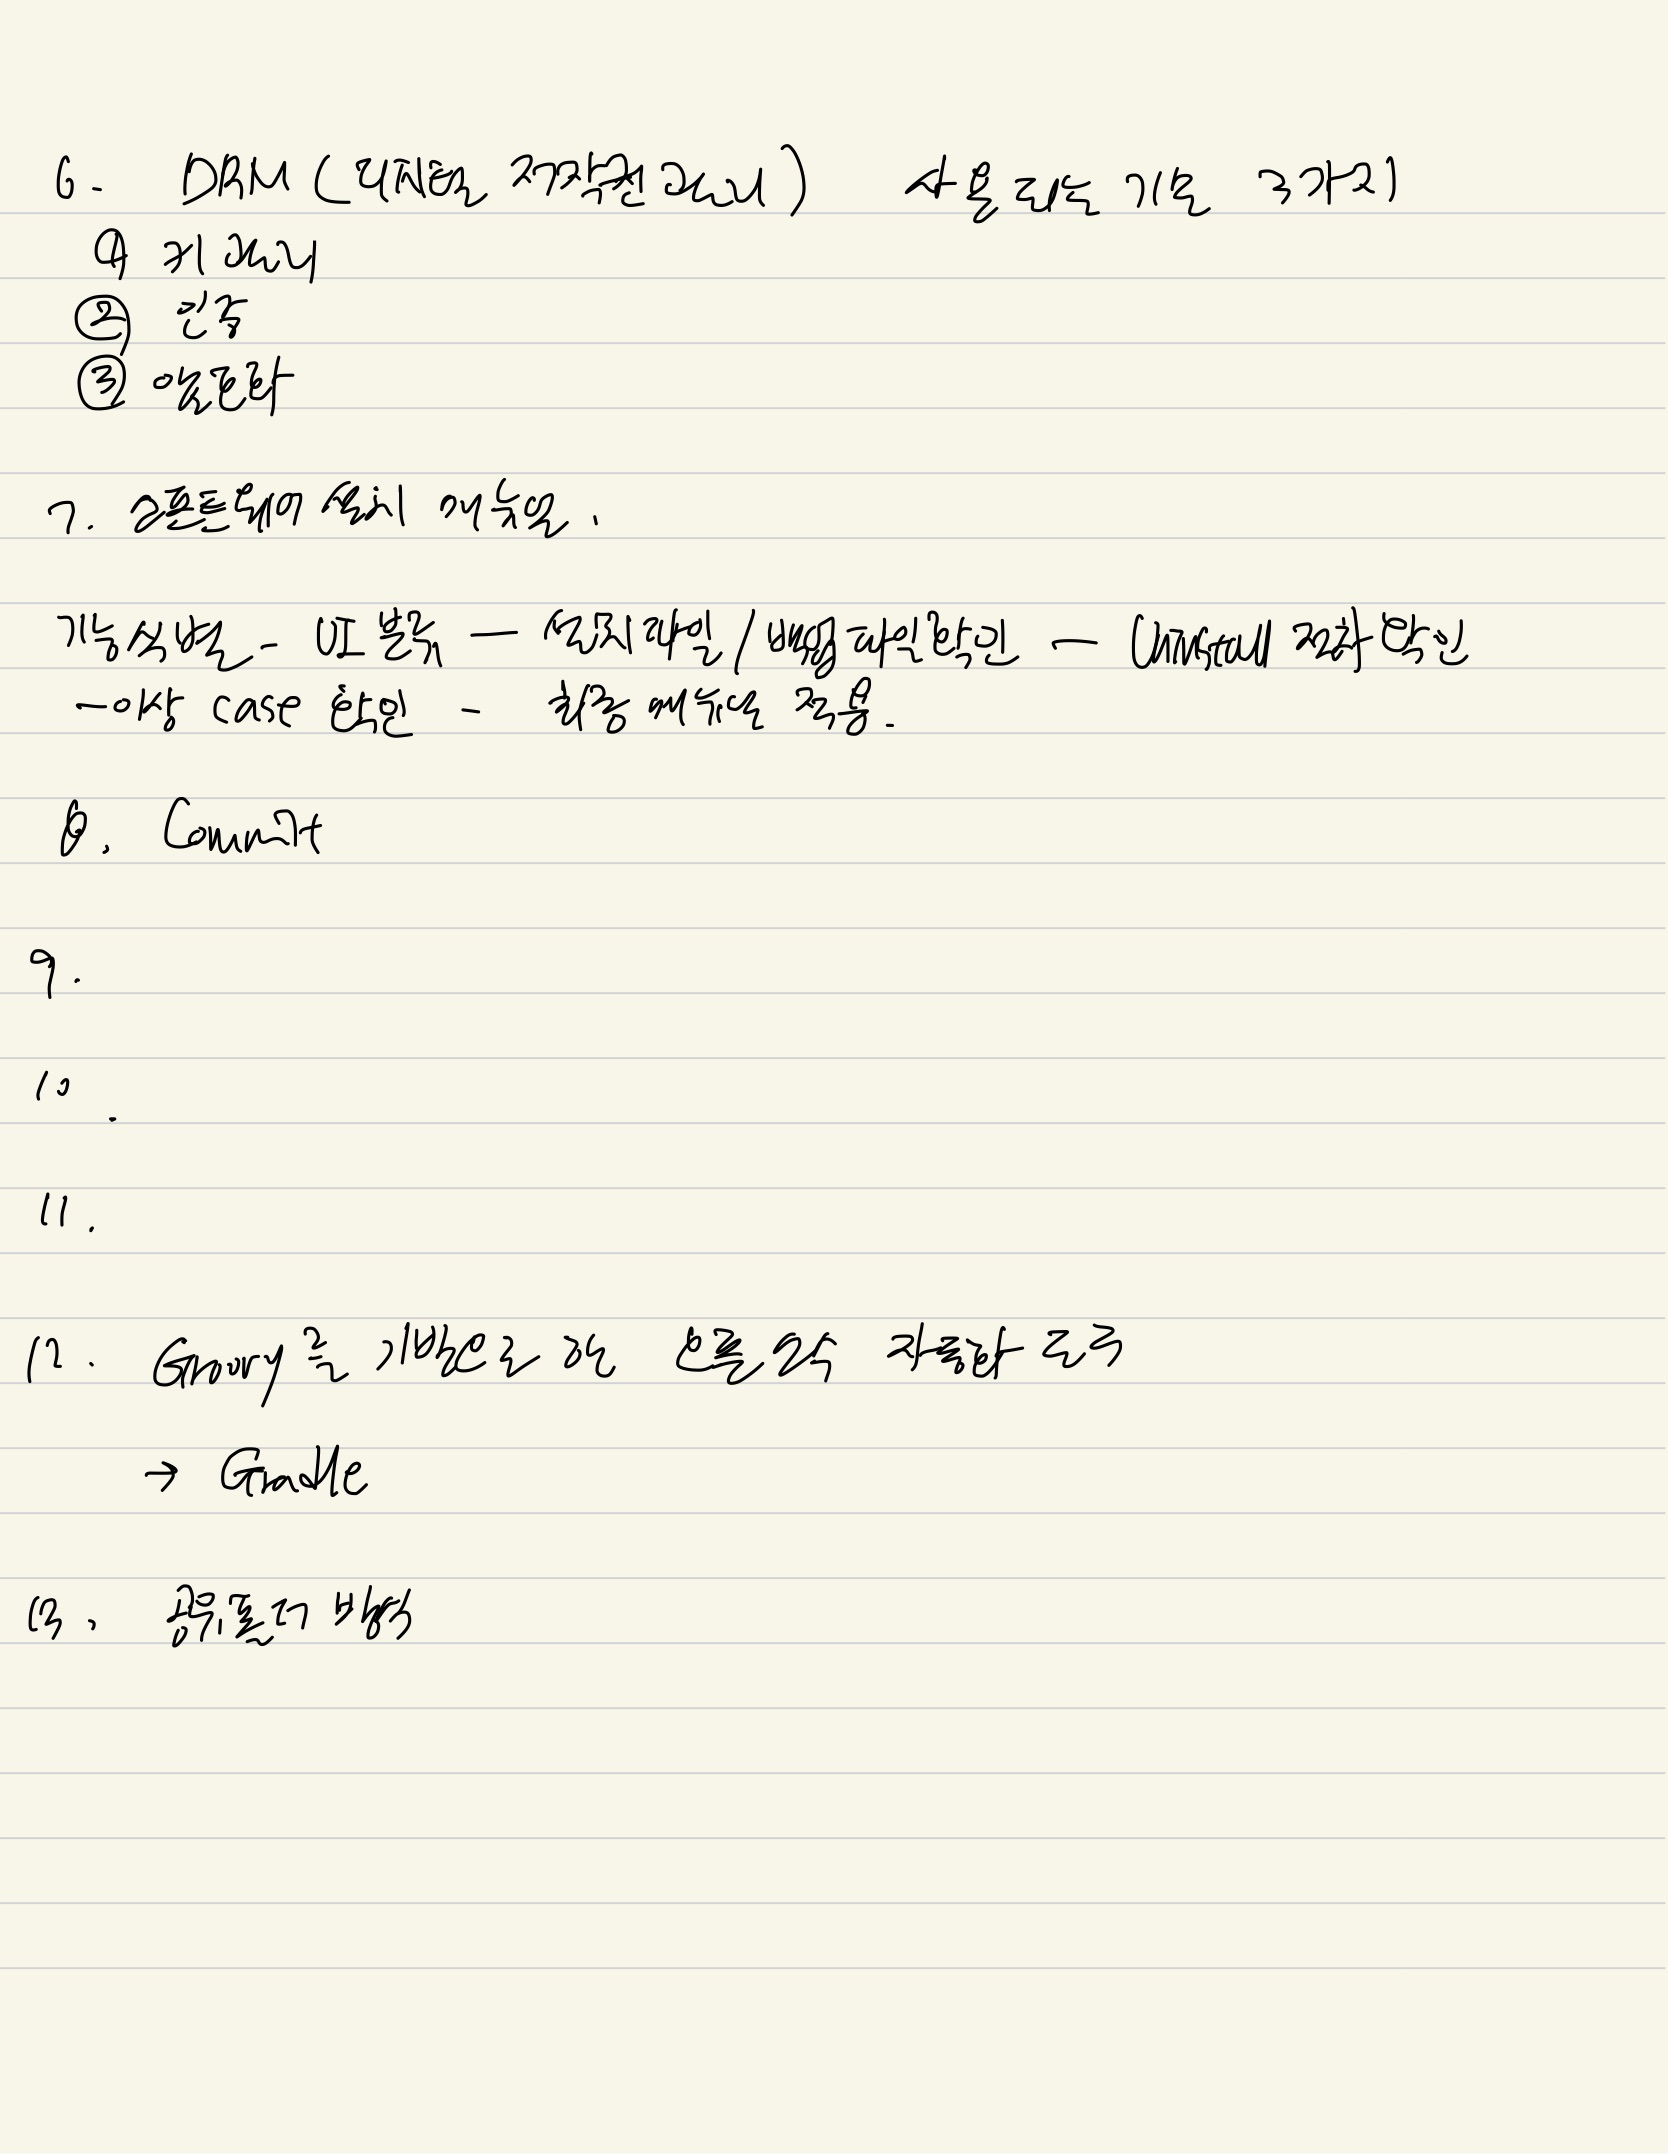 6. DRM (디지털 저작권 관리) 사용 되는 기술 3가지
① 키 관리
② 인증
③ 암호화
7. 소프트웨어 설치 매뉴얼.
기능식별 - UI 분류 - 설치파일/백업파일확인 - Uninstall 절차 확인
- 이상 case 확인 - 최종 매뉴얼 적용.
8. Commit
9.
10.
11.
12. Groovy를 기반으로 하는 오픈소스 자동화 도구
→ Gradle
13. 공유폴더 방식